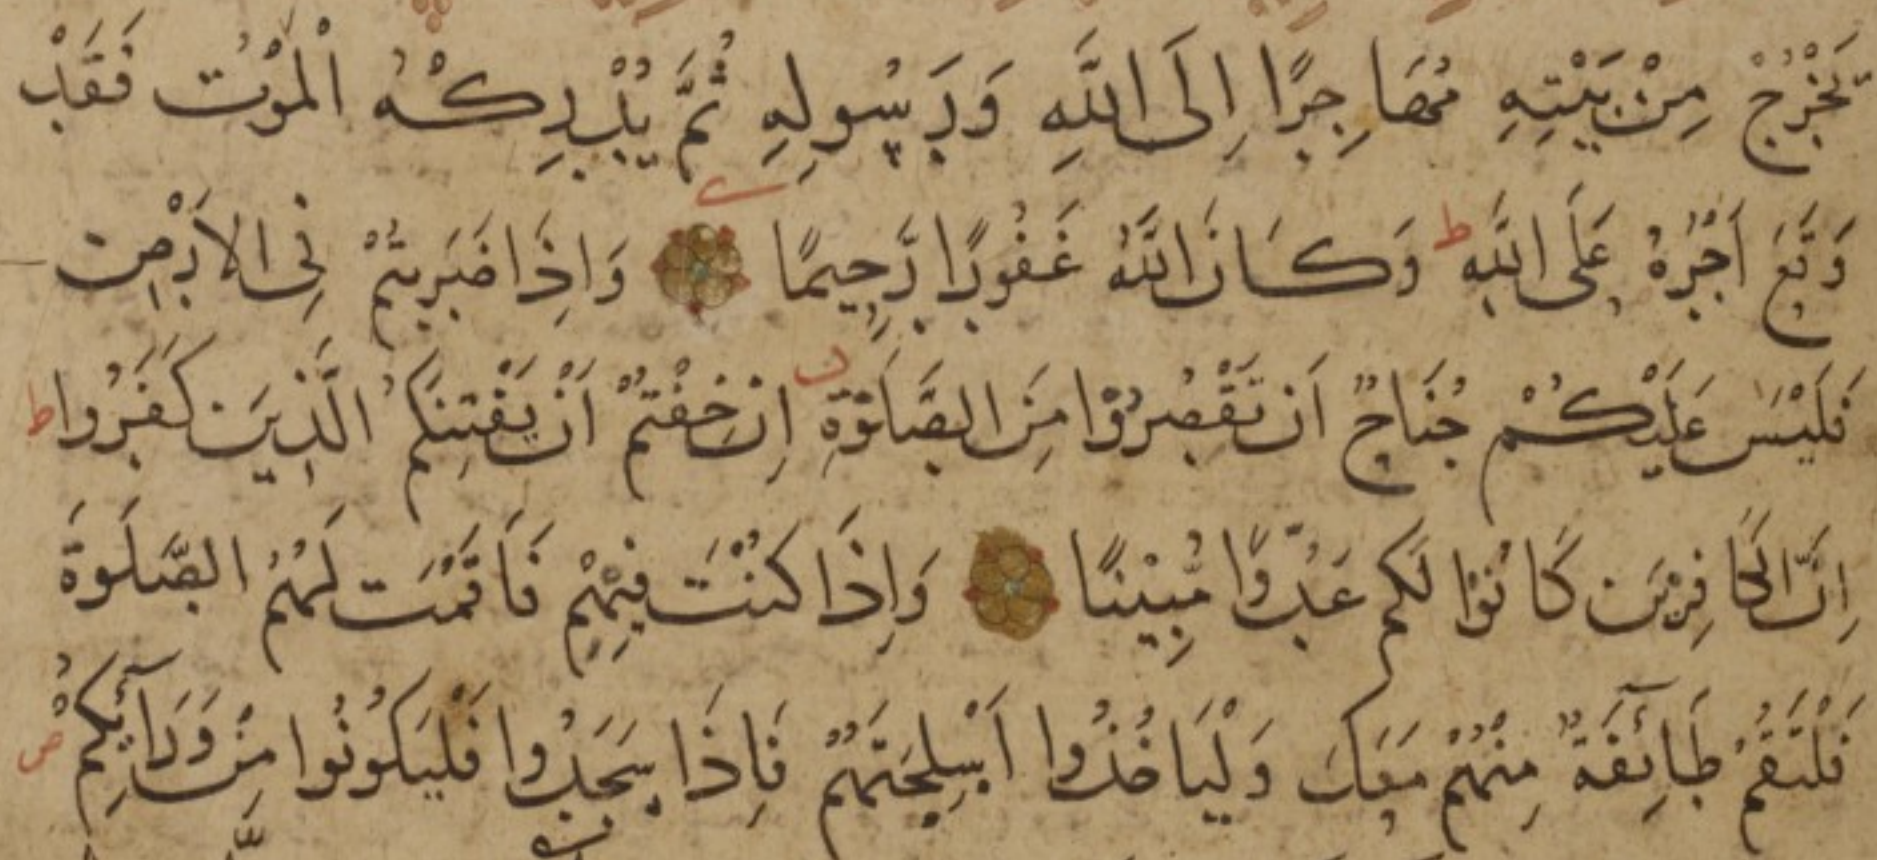 يَخْرُجْ مِنْ بَيْتِهِ مُهَاجِرًا اِلَى اللَّهِ وَرَسُولِهِ ثُمَّ يُدْرِكْهُ الْمَوْتُ فَقَدْ
وَقَعَ اَجْرُهُ عَلَى اللَّهِ ط وَكَانَ اللَّهُ غَفُورًا رَّحِيمًا وَاِذَا ضَرَبْتُمْ فِى الاَرْضِ
فَلَيْسَ عَلَيْكُمْ جُنَاحٌ اَنْ تَقْصُرُوْا مِنَ الصَّلَوٰةِ اِنْ خِفْتُمْ اَنْ يَفْتِنَكُمُ الَّذِينَ كَفَرُوا ط
اِنَّ الْكَافِرِيْنَ كَانُوْا لَكُمْ عَدُوًّا مُّبِيْنًا وَاِذَا كُنْتَ فِيْهِمْ فَاَقَمْتَ لَهُمُ الصَّلَوٰةَ
فَلْتَقُمْ طَآئِفَةٌ مِنْهُمْ مَعَكَ وَلْيَاْخُذُوا اَسْلِحَتَهُمْ فَاِذَا سَجَدُوا فَلْيَكُونُوا مِنْ وَرَآئِكُمْ ص